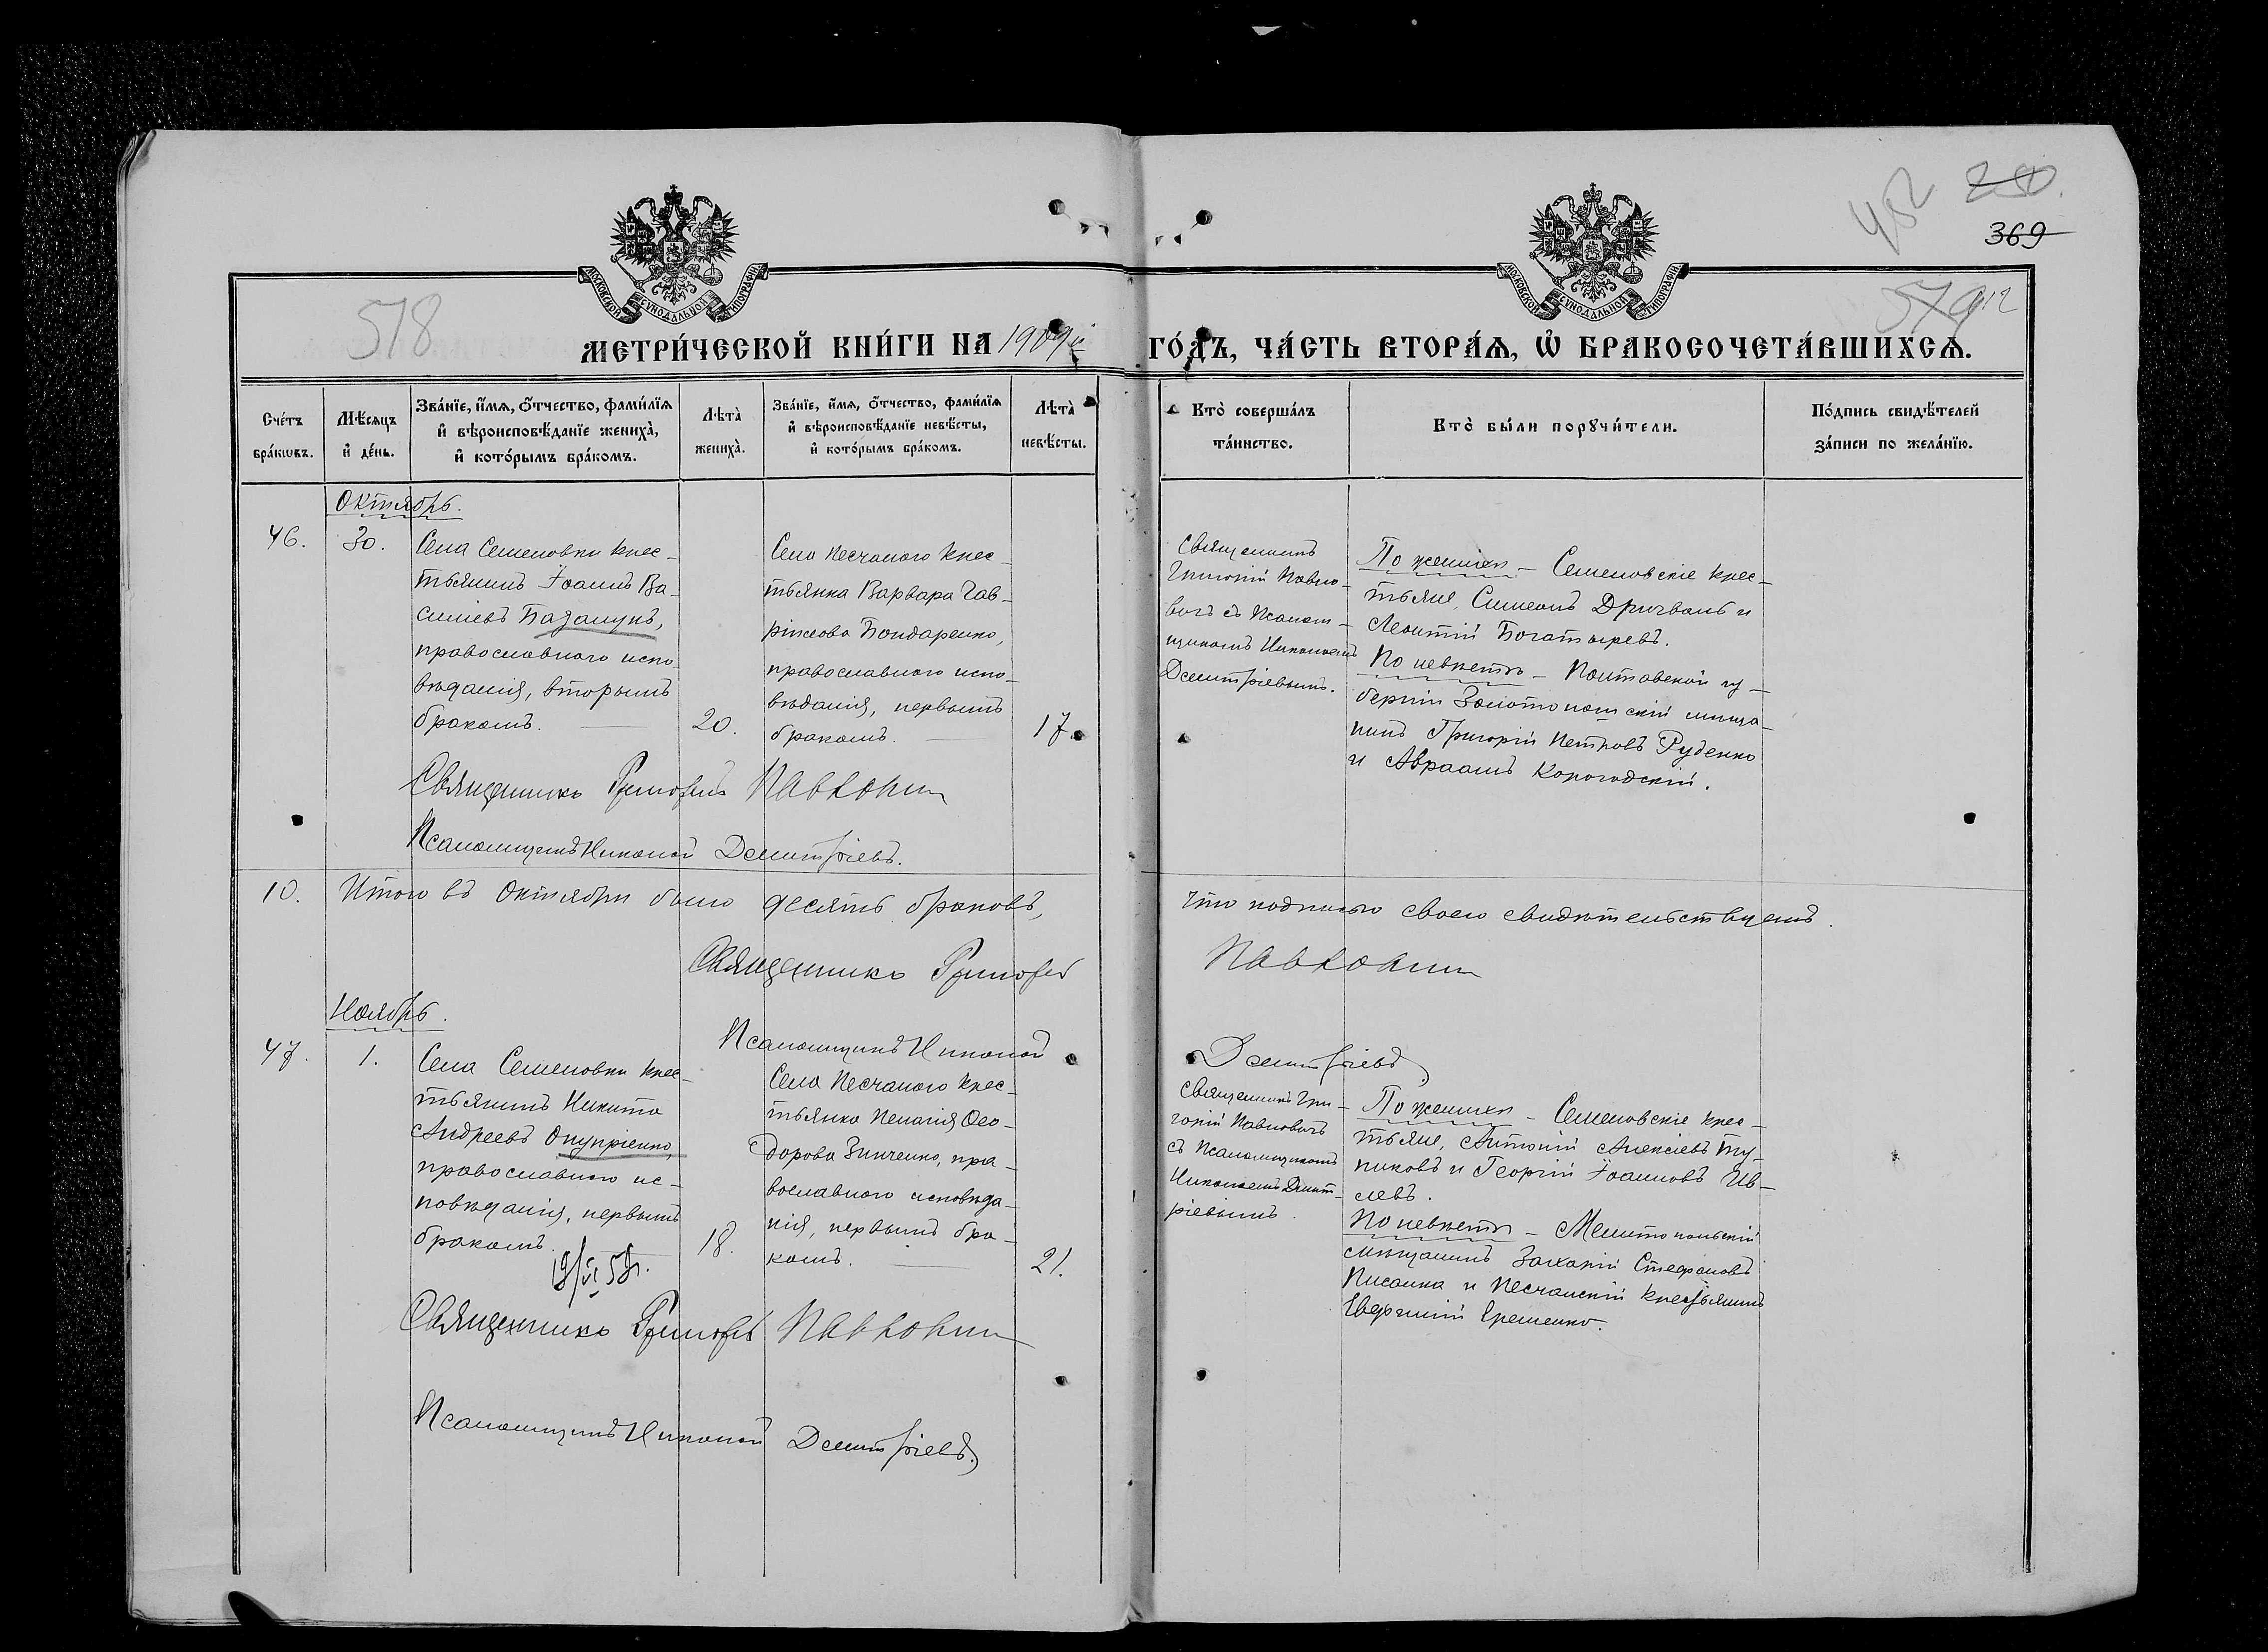 452 250.
369
518
579 12
МОСКОВСКОЙ СѴНОДАЛЬНОЙ ТИПОГРАФІИ
МОСКОВСКОЙ СѴНОДАЛЬНОЙ ТИПОГРАФІИ
МЕТРИ́ЧЕСКОЙ КНИ́ГИ НА 1909й ГО́ДЪ, ЧА́СТЬ ВТОРА́Ѧ, Ѡ҆ БРАКОСОЧЕТА́ВШИХСѦ.
Сче́тъ
бра́кѡвъ.
Мѣ́сѧцъ
и҆ де́нь.
Зва́нїе, и҆́мѧ, ѻ҆́тчество, фами́лїѧ
и҆ вѣроисповѣ́данїе жениха̀,
и҆ кото́рымъ бра́комъ.
Лѣта̀
жениха̀.
Зва́нїе, и҆́мѧ, ѻ҆́тчество, фами́лїѧ
и҆ вѣроисповѣ́данїе невѣ́сты,
и҆ кото́рымъ бра́комъ.
Лѣта̀
невѣ́сты.
Кто̀ соверша́лъ
та́инство.
Кто̀ бы́ли порꙋчи́тели.
По́дпись свидѣ́телей
за́писи по жела́нїю.
Октябрь.
46.
30.
Села Семеновки крес-
тьянинъ Іоаннъ Ва-
силіевъ Базалукъ,
православнаго испо-
вѣданія, вторымъ
бракомъ.
20.
Села Песчанаго крес-
тьянка Варвара Гав-
ріилова Бондаренко,
православнаго испо-
вѣданія, первымъ
бракомъ.
17.
Священникъ
Григорій Павло-
вичъ съ Псалом-
щикомъ Николаемъ
Демитріевымъ.
По женихѣ - Семеновскіе крес-
тьяне, Симеонъ Дригваль и
Леонтій Богатыревъ.
По невѣстѣ - Полтавской гу-
берніи Золотоношскій мѣща-
нинъ Григорій Петровъ Руденко
и Авраамъ Корогодскій.
Священникъ Григорій Павловичъ
Псаломщикъ Николай Демитріевъ.
10.
Итого въ Октябрѣ было десять браковъ,
что подписью своею свидѣтельствуемъ.
Священникъ Григорій
Павловичъ
Псаломщикъ Николай
Демитріевъ
Ноябрь.
47.
1.
Села Семеновки крес-
тьянинъ Никита
Андреевъ Онуприенко,
православнаго ис-
повѣданія, первымъ
бракомъ.
18.
Села Песчанаго крес-
тьянка Пелагія Ѳео-
дорова Зинченко, пра-
вославнаго исповѣда-
нія, первымъ бра-
комъ.
21.
Священникъ Гри-
горій Павловичъ
съ Псаломщикомъ
Николаемъ Демит-
ріевымъ.
По женихѣ - Семеновскіе крес-
тьяне, Антоній Алексіевъ Ту-
пиковъ и Георгій Іоанновъ Ив-
левъ.
По невѣстѣ - Мелитопольскій
мѣщанинъ Захарій Стефановъ
Писанка и Песчанскій крестьянинъ
Евфимій Ерешенко.
Священникъ Григорій Павловичъ
Псаломщикъ Николай Демитріевъ.